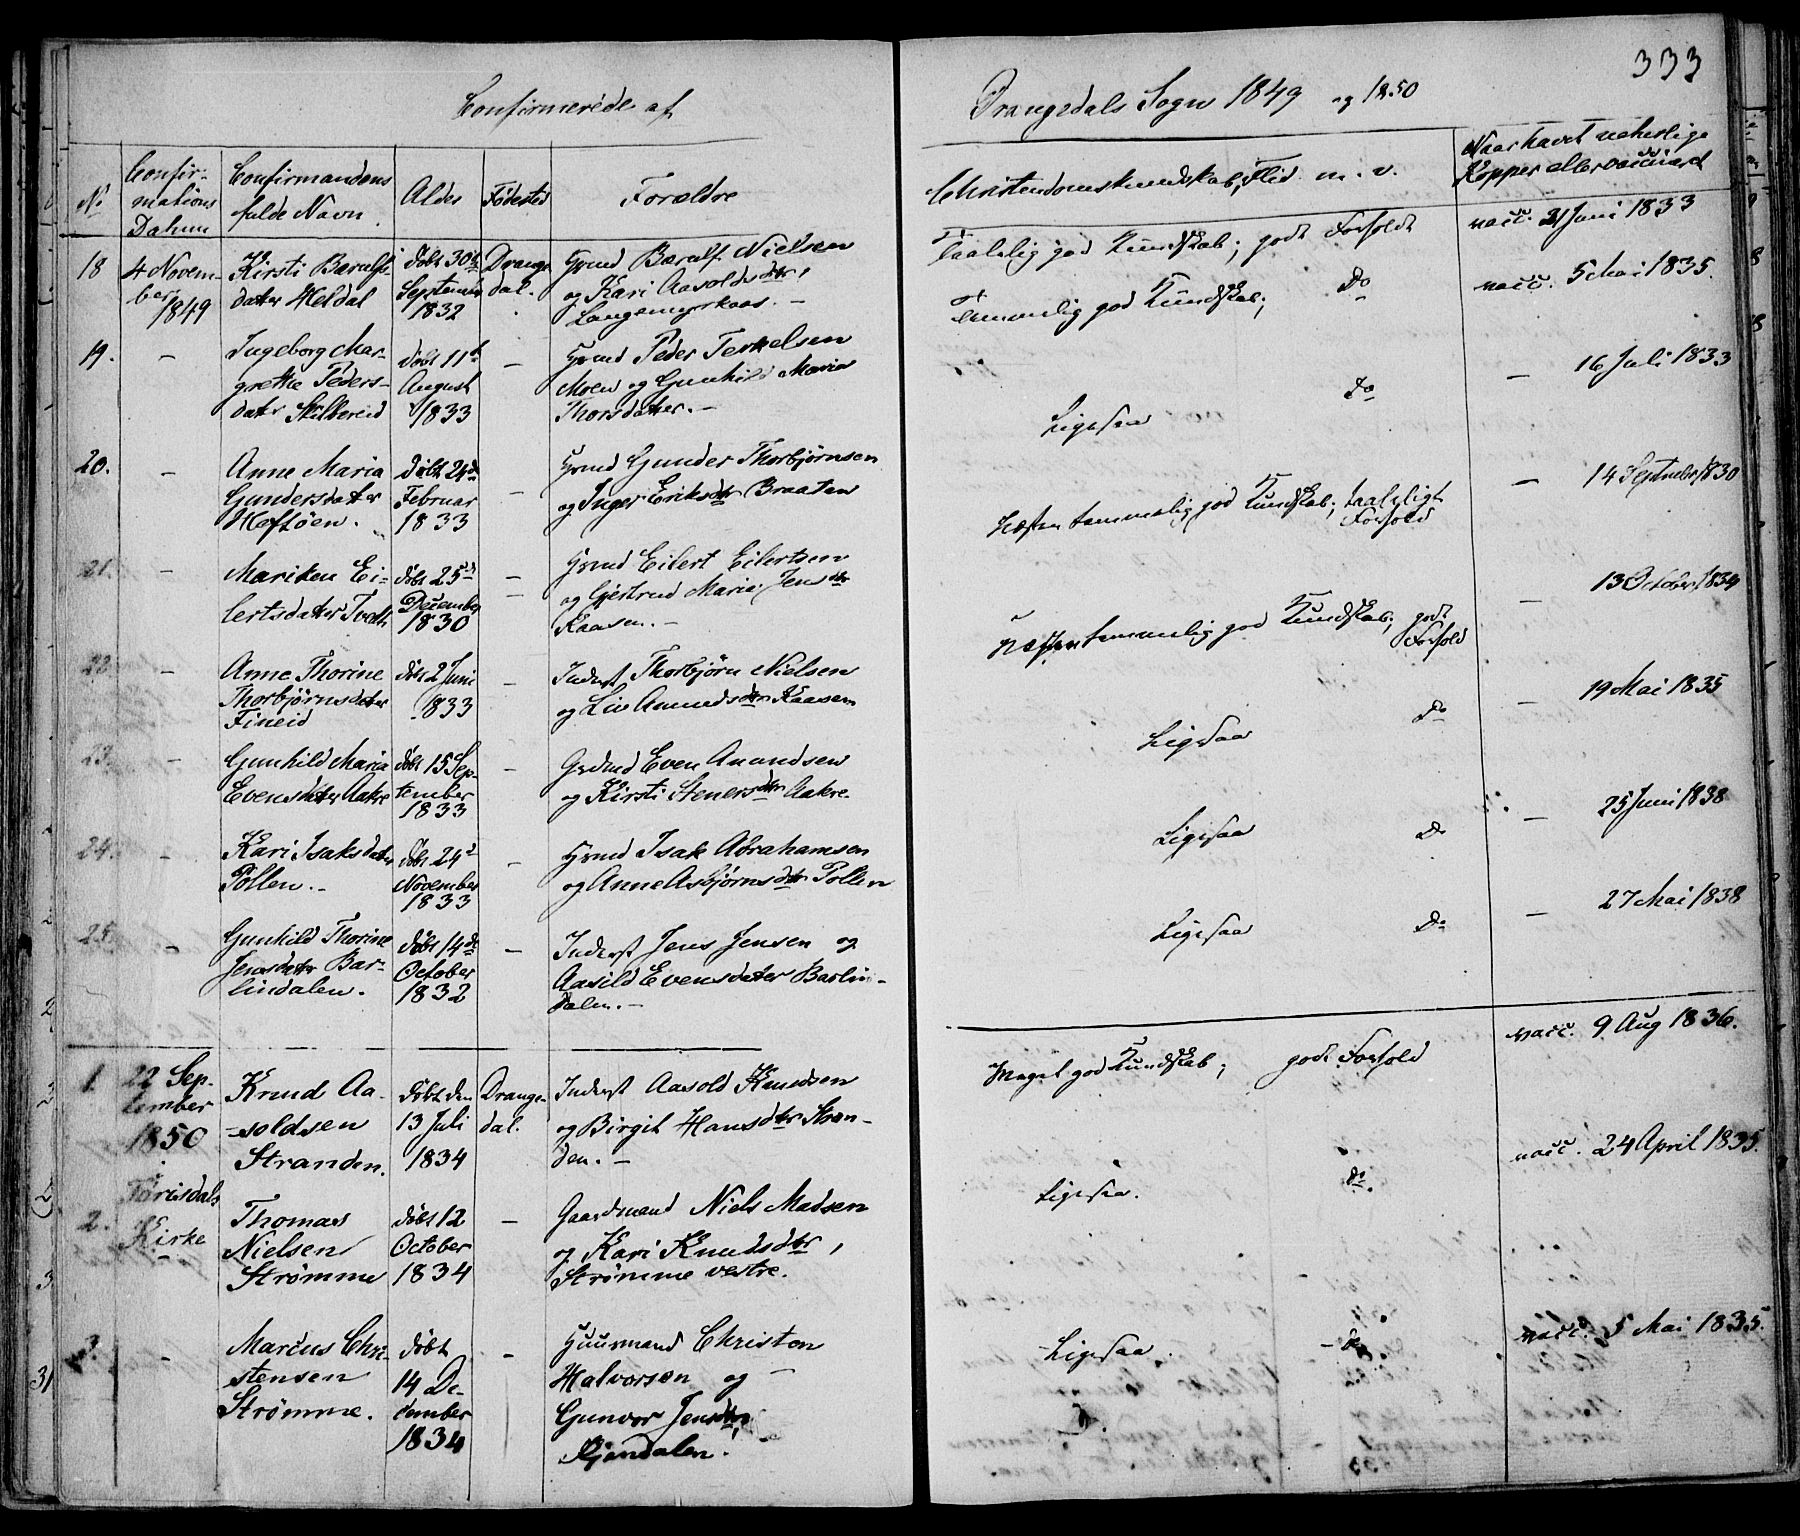 333
Confirmerede af Drangedals Sogn 1849 og 1850
No
Confir-
mations
Datum
Confirmandens
fulde Navn
Alder
Fødested
Forældre
Christendomskundskab, Flid m. v.
Naar havt naturlige
Kopper eller vaccinerd
18
4 Novem-
ber
1849
Kirsti Bærulfs-
dater Heldal
døbt 30te
September
1832
Drange
dal.
Grmd Bærulf Nielsen
og Kari Aasoldsdtr,
Langemyrkaas. -
Taalelig god Kundskab; godt Forhold
vacc. 21 Juni 1833
19.
-
Ingeborg Mar-
grethe Peders-
dater Skilbereid
døbt 11te
August
1833
-
Grmd Peder Terkelsen
Moen og Gunhild Maria
Thorsdater. -
Temmelig god Kundskab; Do
vacc. 5 Mai 1835.
20.
-
Anne Maria
Gundersdater
Heftøen.
døbt 24de
Februar
1833
-
Grmd Gunder Thorbjørnsen
og Inger Eriksdtr Braaten
Ligesaa Do
- 16 Juli 1833
21.
-
Mariken Ei-
lertsdater Tveth
døbt 25de
December
1830
-
Grmd Eilert Eilertsen
og Gjertrud Marie Jensdtr
Kaasen. -
Næsten temmelig god Kundskab; taaleligt
Forhold
- 14 September 1830
22.
-
Anne Thorine
Thorbjørnsdater
Fineid
døbt 2 Juni
1833
-
Inderst Thorbjørn Nielsen
og Liv Amundsdtr Kaasen
Næsten temmelig god Kundskab; godt
Forhold
- 13 October 1834
23.
-
Gunhild Maria
Evensdater Aakre
døbt 15 Sep-
tember
1833
-
Grdmd Even Anundsen
og Kirsti Stenersdtr Aakre.
Ligesaa Do
- 19 Mai 1835
24.
-
Kari Isaksdater
Tollen. -
døbt 24de
November
1833
-
Grmd Isak Abrahamsen
og Anne Asbjørnsdtr Tollen
Ligesaa Do
- 25 Juni 1838
25.
-
Gunhild Thorine
Jensdater Bar-
lindalen.
døbt 14de
October
1832
-
Inderst Jens Jensen og
Aasild Evensdater Barlin-
dalen. -
Ligesaa Do
- 27 Mai 1838
1.
22 Sep-
tember
1850
i
Tørisdals
Kirke
Knud Aa-
soldsen
Stranden.
døbt den
13 Juli
1834
Drange
dal.
Inderst Aasold Knudsen
og Birgit Hansdtr Stran-
den. -
Meget god Kundskab; godt Forhold
vacc. 9 Aug 1836.
2.
Thomas
Nielsen
Strømme
døbt 12
October
1834
-
Gaardmand Niels Madsen
og Kari Knudsdtr,
Strømme vestre.
Ligesaa. do.
vacc. 24 April 1835.
3.
-
Marcus Chri-
stensen
Strømme.
døbt
14 De-
cember
1834
-
Huusmand Christen
Halvorsen og
Gunvor Jensdtr,
Ligesaa. - do
vacc. 5 Mai 1835.